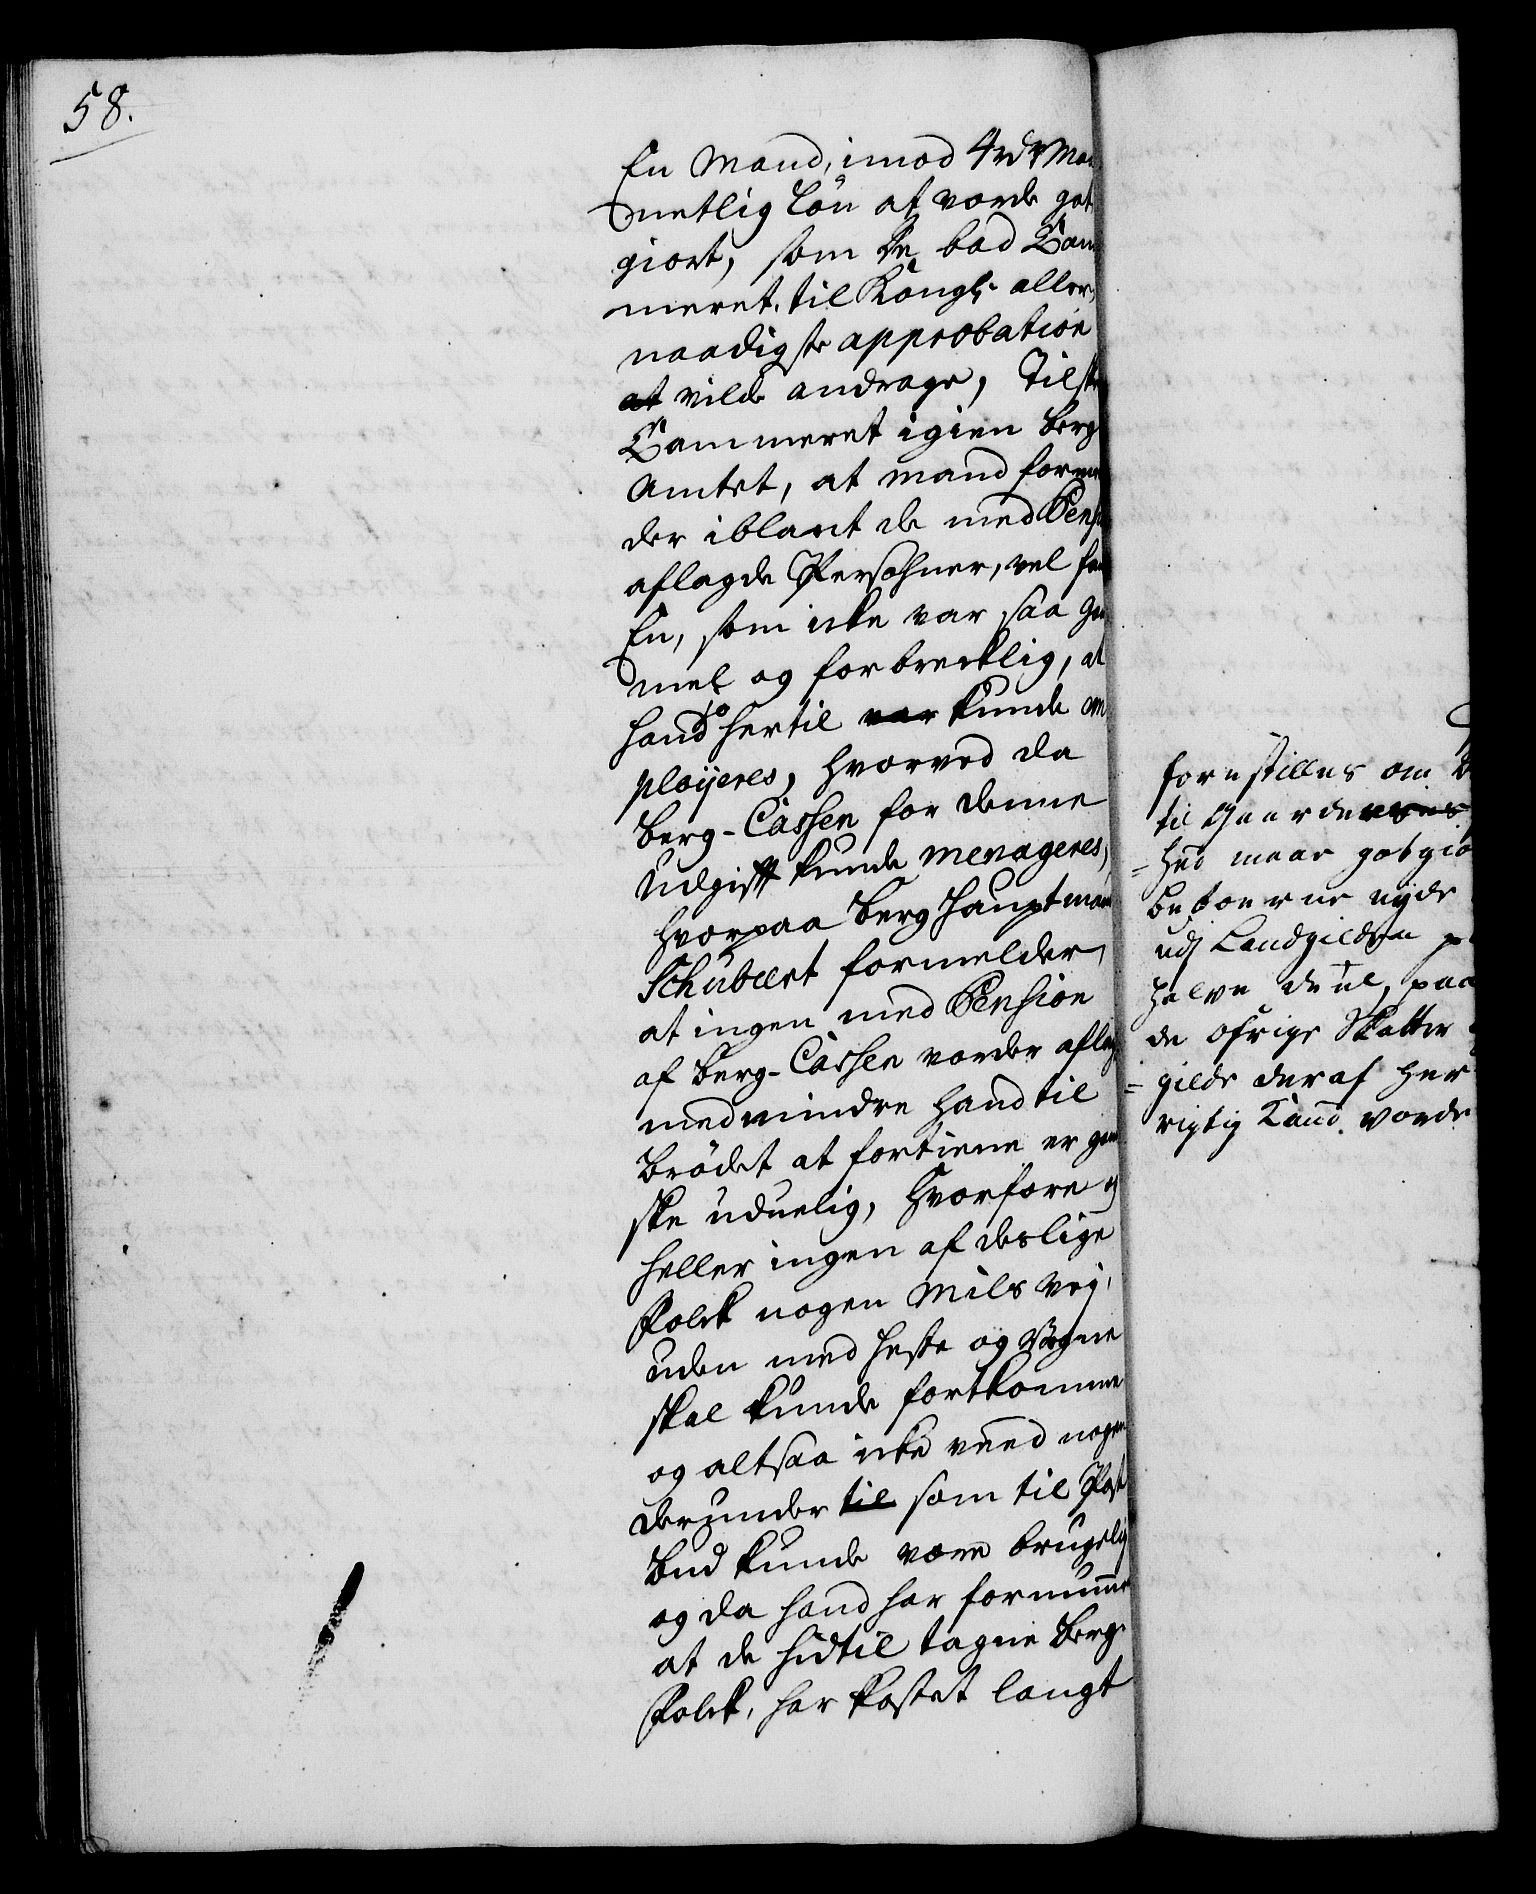 58.
En Mand, imod 4 rdr Maa
netlig Løn at vorde got
giort, som De bad Cam
meret til Kongl. aller
naadigste approbation
at vilde andrage, Tilskr
Cammeret igien Berg
Amtet, at mand forme
der iblant de med Pensi
aflagde Persohner, vel fan
En, som icke var saa ga
mel og forbrecklig, at
hand jo hertil var kunde em
ployeres, hvorved da
Berg-Cassen for denne
Udgifft kunde menageres,
Hvorpaa Berghauptman
Schubært formelder,
at ingen med Pension
af Berg-Cassen vorder aflag
med mindre hand til
Brødet at fortiene er gan
ske uduelig, Hvorfore og
heller ingen af deslige
Folck nogen Miils Vej,
uden med Heste og Vogne
skal kunde fortkomme
og altsaa icke meed nogen
derunder til som til Post
Bud kunde være brugelig
og da hand har fornumme
at de hidtil tagne Berg-
Folck, har kostet langt
forestilles om B
til Gaarderes
hud maae godgiø
Bøberne nyde
udj Landgilden p
halve deel, paa
de øfrige Skatter
gilde deraf her
rigtig Kand vorde